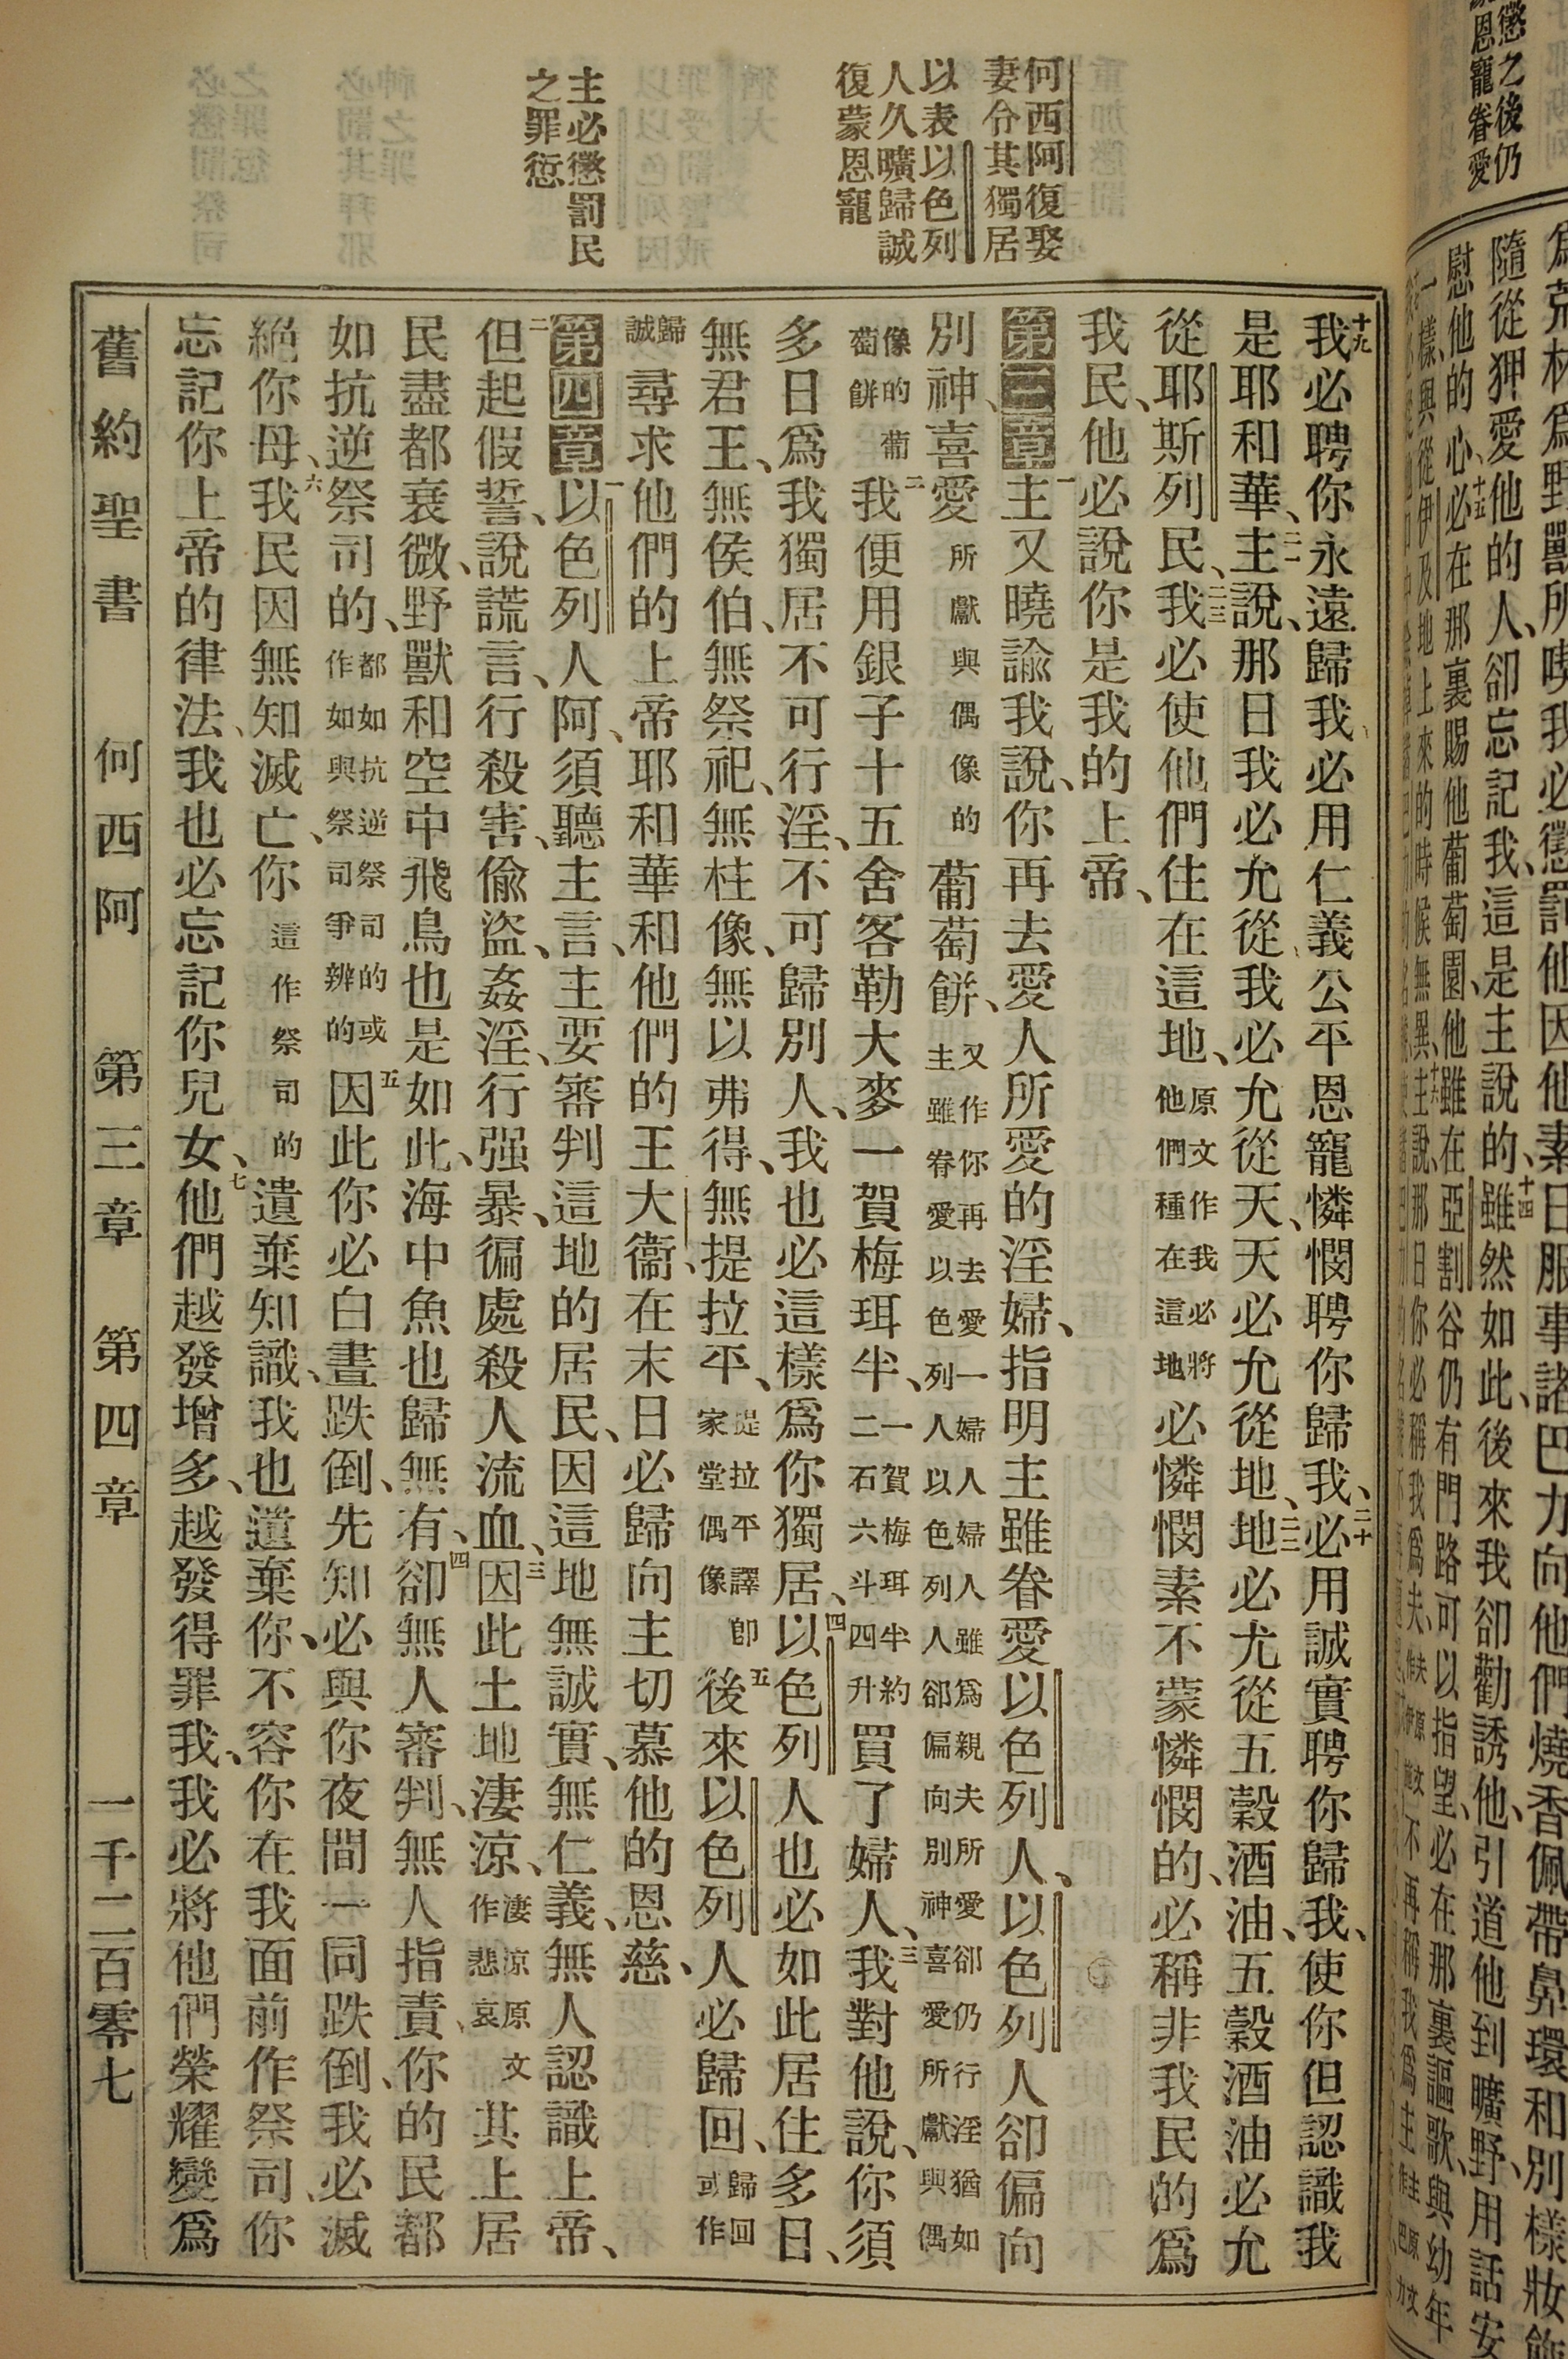 何西阿復娶
妻令其獨居
以表以色列
人久曠歸誠
復蒙恩寵
主必懲罰民
之罪愆
十九我必聘你永遠歸我、必用仁義公平恩寵憐憫聘你歸我、二十必用誠實聘你歸我、使你但認識我
是耶和華、二一主說、那日我必允從、我必允從天、天必允從地、二二地必允從五穀酒油、五穀酒油必允
從耶斯列民、二三我必使他們住在這地、原文作我必將他們種在這地必憐憫素不蒙憐憫的、必稱非我民的爲
我民、他必說你是我的上帝、
第三章一主又曉諭我說、你再去愛人所愛的淫婦、指明主雖眷愛以色列人、以色列人卻偏向
別神、喜愛所獻與偶像的葡萄餅、又作你再去愛一婦人婦人雖爲親夫所愛卻仍行淫猶如主雖眷愛以色列人以色列人卻偏向別神喜愛所獻與偶
像的葡萄餅二我便用銀子十五舍客勒大麥一賀梅珥半、一賀梅珥半約二石六斗四升買了婦人、三我對他說、你須
多日爲我獨居不可行淫、不可歸別人、我也必這樣爲你獨居、四以色列人也必如此居住多日、
無君王、無侯伯、無祭祀、無柱像、無以弗得、無提拉平、提拉平譯卽家堂偶像五後來以色列人必歸回、歸回或作
歸誠尋求他們的上帝耶和華和他們的王大衞、在末日必歸向主切慕他的恩慈、
第四章一以色列人阿、須聽主言、主要審判這地的居民、因這地無誠實、無仁義、無人認識上帝、
二但起假誓、說謊言、行殺害、偸盜、姦淫、行强暴、徧處殺人流血、三因此土地淒涼、淒涼原文作悲哀其上居
民盡都衰微、野獸和空中飛鳥也是如此、海中魚也歸無有、四卻無人審判、無人指責、你的民都
如抗逆祭司的、都如抗逆祭司的或作如與祭司爭辨的五因此你必白晝跌倒、先知必與你夜間一同跌倒、我必滅
絕你母、六我民因無知滅亡、你這作祭司的遺棄知識、我也遺棄你、不容你在我面前作祭司、你
忘記你上帝的律法、我也必忘記你兒女、七他們越發增多、越發得罪我、我必將他們榮耀變爲
舊約聖書 何西阿 第三章 第四章 一千二百零七
懲之後仍
恩寵眷愛
野獸所喫我必懲罰他因他素日服事諸巴力向他們燒香佩帶鼻環和別樣妝飾
隨從狎愛他的人、卻忘記我、這是主說的、十四雖然如此、後來我卻勸誘他、引道他到曠野、用話安
慰他的心、十五必在那裏賜他葡萄園、他雖在亞割谷仍有門路可以指望、必在那裏謳歌、與幼年
一樣、與從伊及地上來的時候無異、十六主說、那日你必稱我爲夫、不再稱我爲主